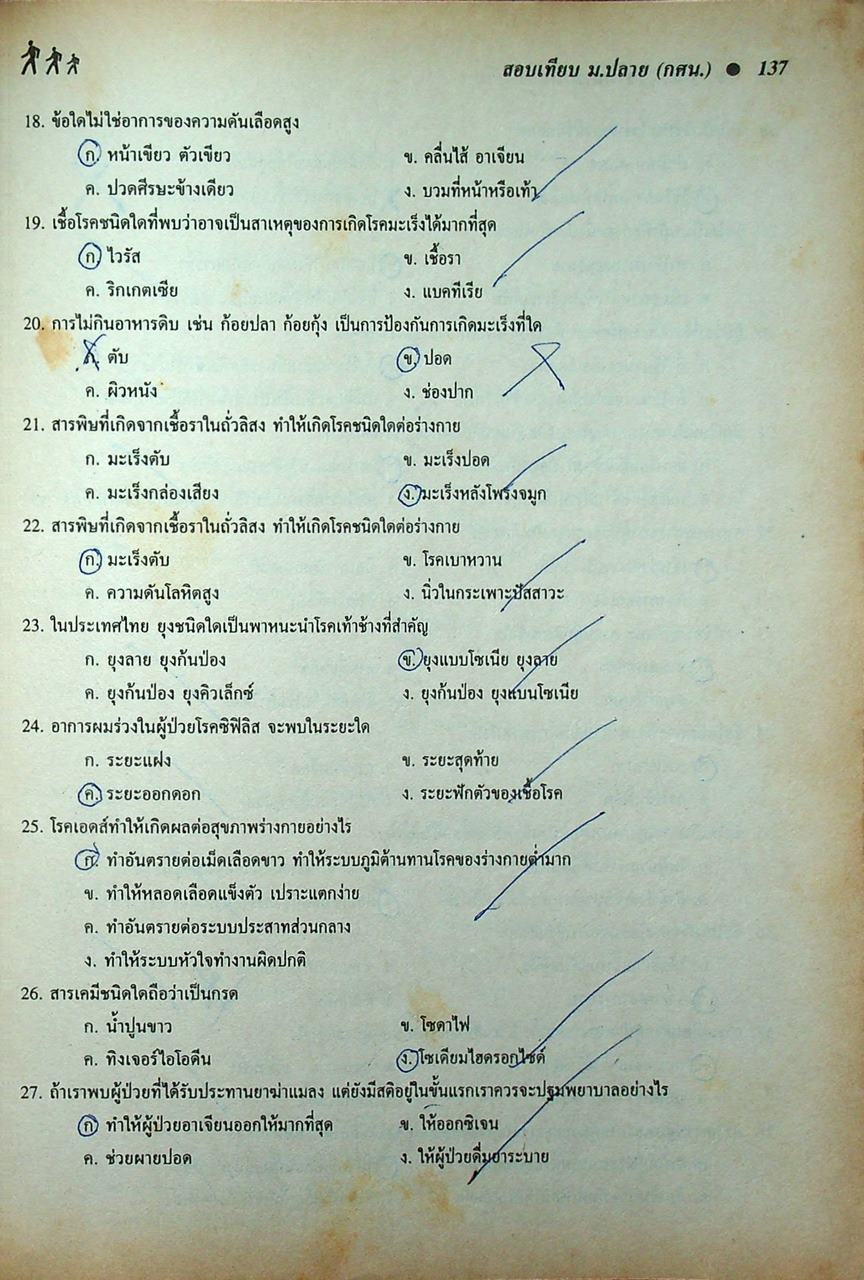 สอบเทียบ ม.ปลาย (กศน.) ● 137
18. ข้อใดไม่ใช่อาการของความดันเลือดสูง
ก. หน้าเขียว ตัวเขียว ข. คลื่นไส้ อาเจียน
ค. ปวดศีรษะข้างเดียว ง. บวมที่หน้าหรือเท้า
19. เชื้อโรคชนิดใดที่พบว่าอาจเป็นสาเหตุของการเกิดโรคมะเร็งได้มากที่สุด
ก. ไวรัส ข. เชื้อรา
ค. ริกเกตเซีย ง. แบคทีเรีย
20. การไม่กินอาหารดิบ เช่น ก้อยปลา ก้อยกุ้ง เป็นการป้องกันการเกิดมะเร็งที่ใด
ก. ตับ ข. ปอด
ค. ผิวหนัง ง. ช่องปาก
21. สารพิษที่เกิดจากเชื้อราในถั่วลิสง ทำให้เกิดโรคชนิดใดต่อร่างกาย
ก. มะเร็งตับ ข. มะเร็งปอด
ค. มะเร็งกล่องเสียง ง. มะเร็งหลังโพรงจมูก
22. สารพิษที่เกิดจากเชื้อราในถั่วลิสง ทำให้เกิดโรคชนิดใดต่อร่างกาย
ก. มะเร็งตับ ข. โรคเบาหวาน
ค. ความดันโลหิตสูง ง. นิ่วในกระเพาะปัสสาวะ
23. ในประเทศไทย ยุงชนิดใดเป็นพาหนะนำโรคเท้าช้างที่สำคัญ
ก. ยุงลาย ยุงก้นป่อง ข. ยุงแบบโซเนีย ยุงลาย
ค. ยุงก้นป่อง ยุงคิวเล็กซ์ ง. ยุงก้นป่อง ยุงแบนโซเนีย
24. อาการผมร่วงในผู้ป่วยโรคซิฟิลิส จะพบในระยะใด
ก. ระยะแฝง ข. ระยะสุดท้าย
ค. ระยะออกดอก ง. ระยะฟักตัวของเชื้อโรค
25. โรคเอดส์ทำให้เกิดผลต่อสุขภาพร่างกายอย่างไร
ก. ทำอันตรายต่อเม็ดเลือดขาว ทำให้ระบบภูมิต้านทานโรคของร่างกายต่ำมาก
ข. ทำให้หลอดเลือดแข็งตัว เปราะแตกง่าย
ค. ทำอันตรายต่อระบบประสาทส่วนกลาง
ง. ทำให้ระบบหัวใจทำงานผิดปกติ
26. สารเคมีชนิดใดถือว่าเป็นกรด
ก. น้ำปูนขาว ข. โซดาไฟ
ค. ทิงเจอร์ไอโอดีน ง. โซเดียมไฮดรอกไซด์
27. ถ้าเราพบผู้ป่วยที่ได้รับประทานยาฆ่าแมลง แต่ยังมีสติอยู่ในขั้นแรกเราควรจะปฐมพยาบาลอย่างไร
ก. ทำให้ผู้ป่วยอาเจียนออกให้มากที่สุด ข. ให้ออกซิเจน
ค. ช่วยผายปอด ง. ให้ผู้ป่วยดื่มยาระบาย